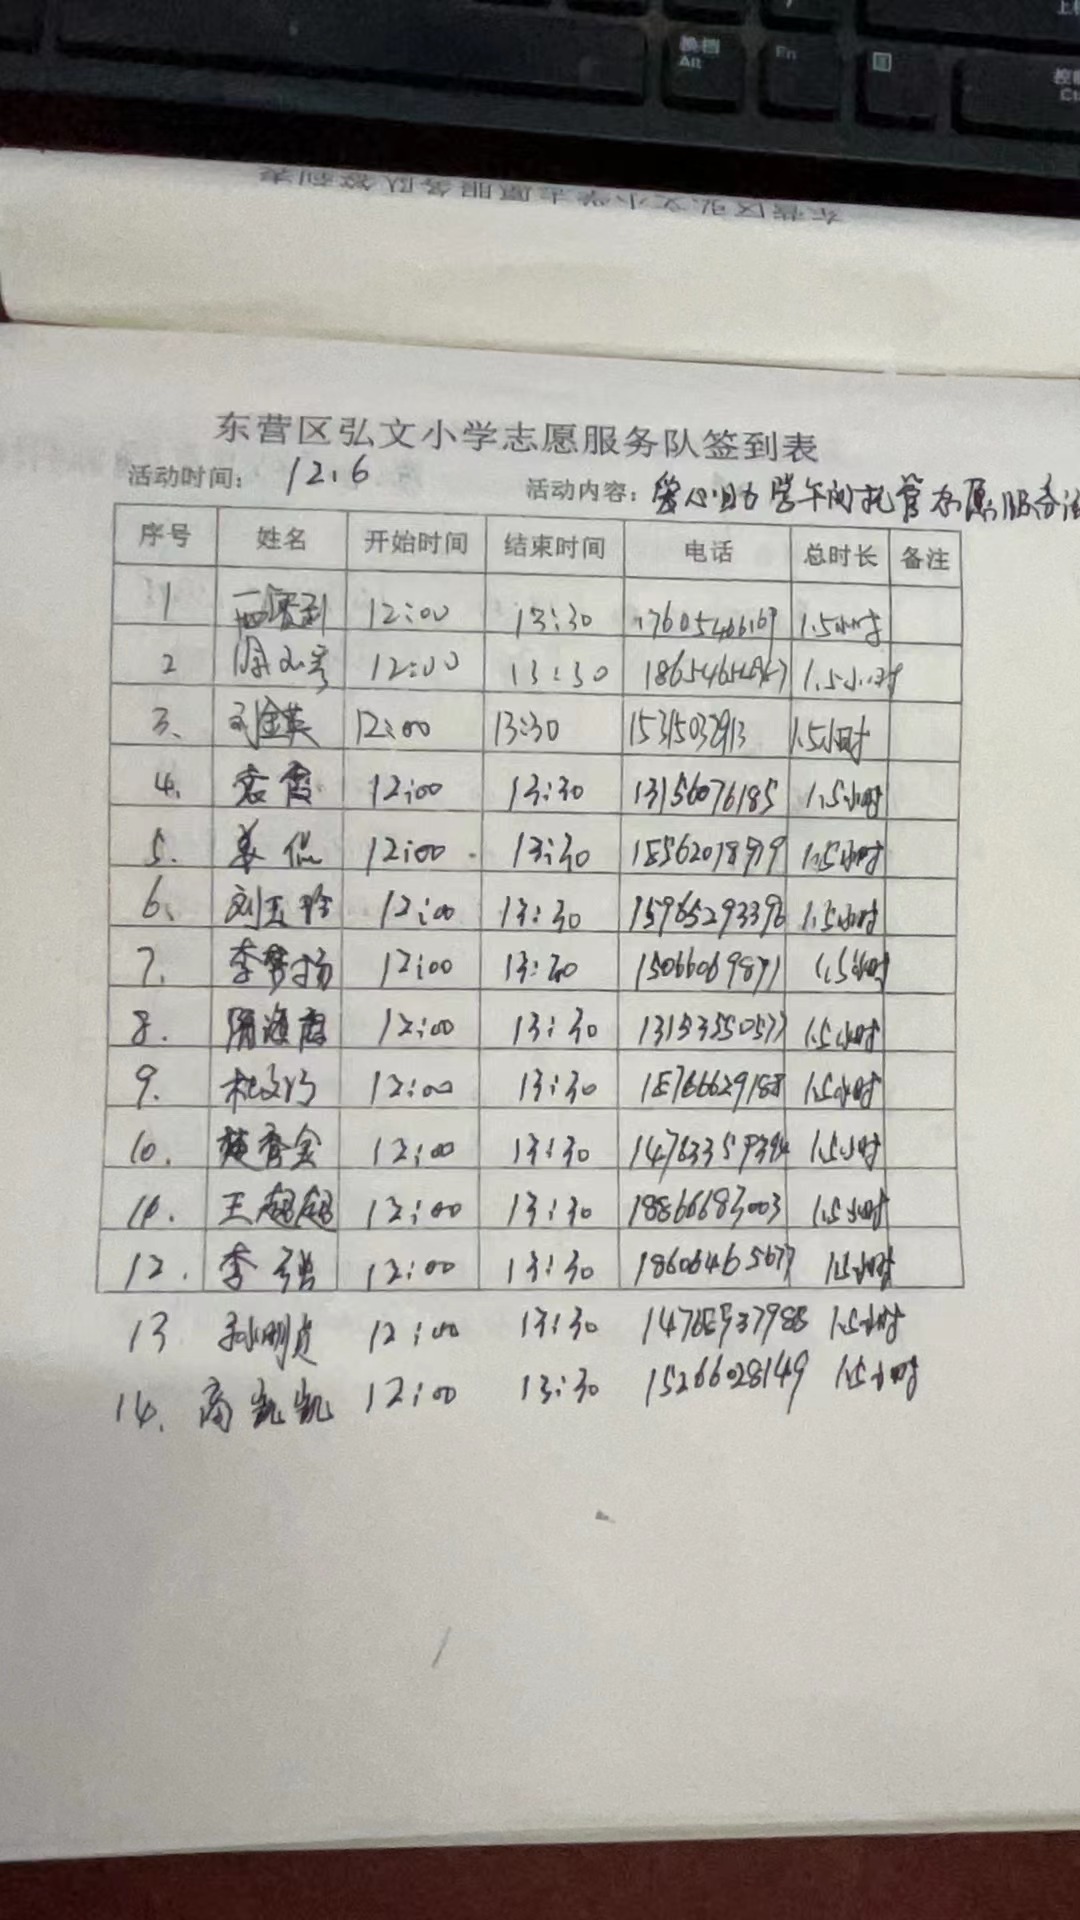 换档
Alt
En
东营区弘文小学志愿服务队签到表
东营区弘文小学志愿服务队签到表
活动时间: 12.6 活动内容: 爱心助学午间托管志愿服务活
序号 姓名 开始时间 结束时间 电话 总时长 备注
1 12:00 13:30 1.5小时
2 12:00 13:30 1.5小时
3、 刘金英 12:00 13:30 15315032913 1.5小时
4. 袁霞 12:00 13:30 13156076185 1.5小时
5. 姜侃 12:00 13:30 1.5小时
6、 刘玉玲 12:00 13:30 15965293396 1.5小时
7. 李梦扬 12:00 13:30 15066069871 1.5小时
8. 隋海霞 12:00 13:30 13153550577 1.5小时
9. 杜文巧 12:00 13:30 15766629188 1.5小时
10. 12:00 13:30 14763359394 1.5小时
11. 王超超 12:00 13:30 18866683003 1.5小时
12. 李强 12:00 13:30 18606465677 1.5小时
13 孙明贞 12:00 13:30 14765937988 1.5小时
14. 商凯凯 12:00 13:30 15266028149 1.5小时